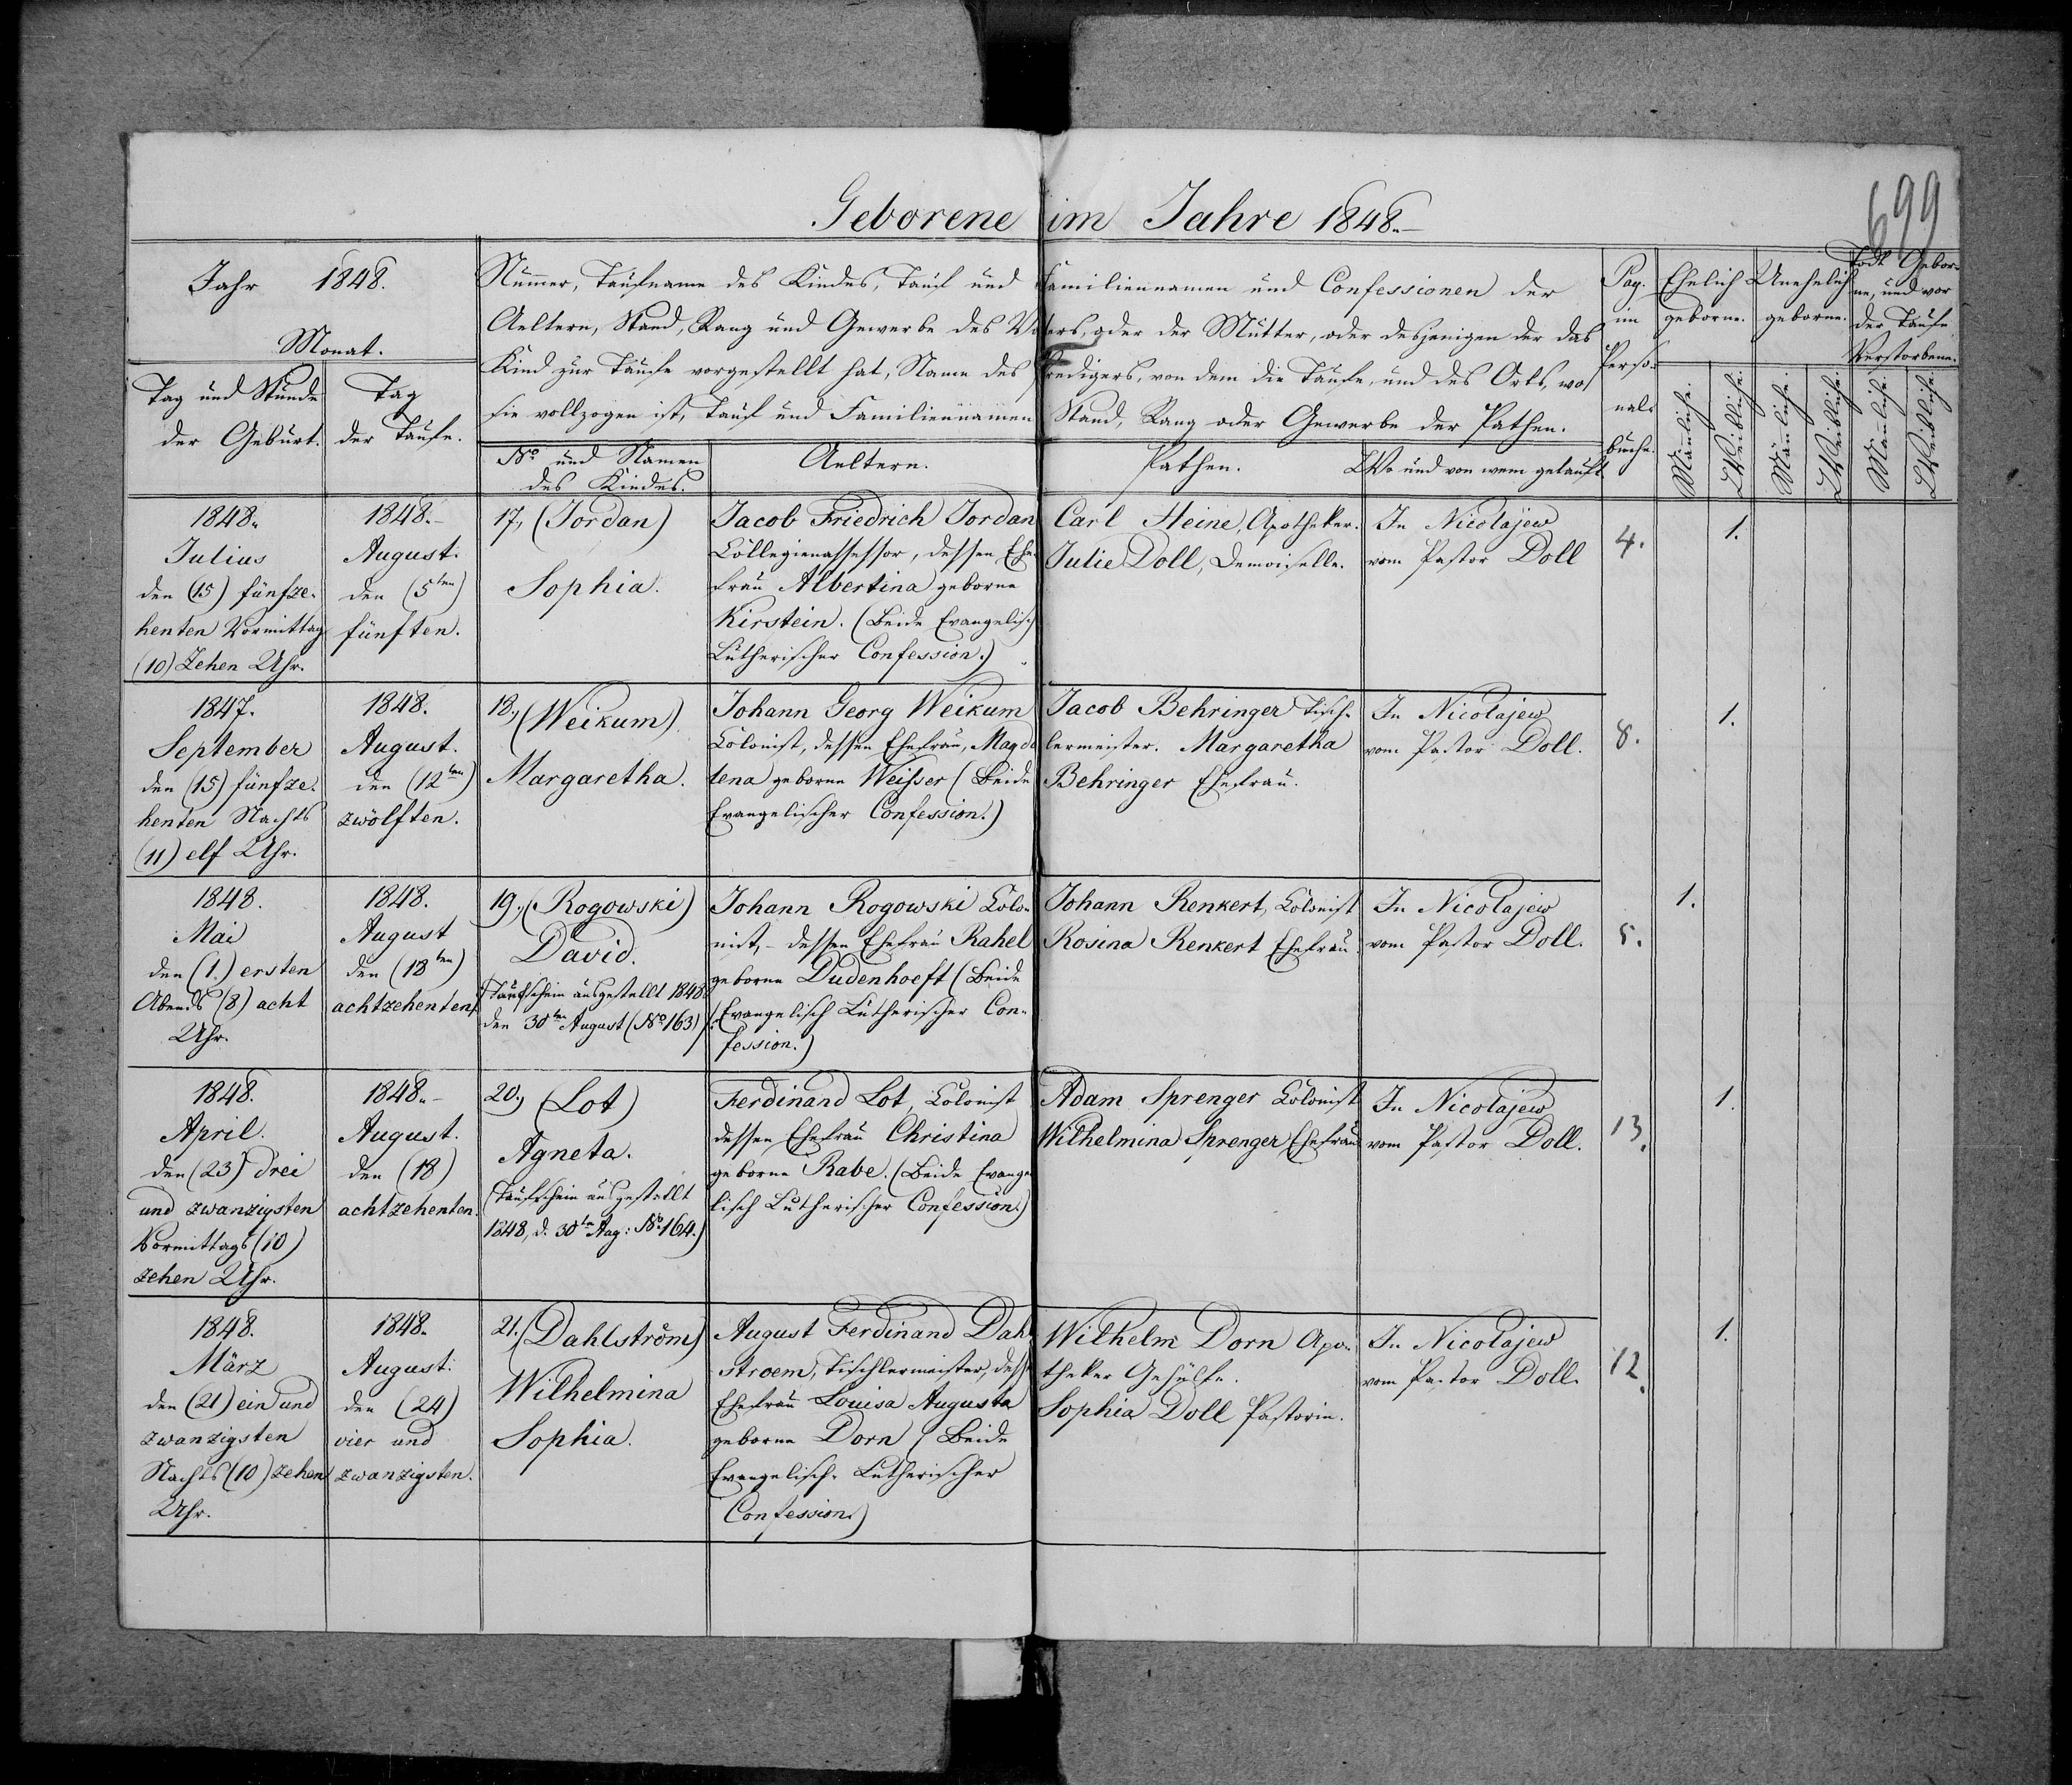 699
Geborene im Jahre 1848.
Jahr 1848.
Monat.
Tag und Stunde
der Geburt.
Tag
der Taufe.
Nummer, Taufname des Kindes, Tauf und Familiennamen und Confessionen der
Aeltern, Stand, Rang und Gewerbe des Vaters, oder der Mutter, oder desjenigen der das
Kind zur Taufe vorgestellt hat, Name des Predigers, von dem die Taufe, und des Orts, wo
sie vollzogen ist, Tauf und Familiennamen Stand, Rang oder Gewerbe der Pathen.
No und Namen
des Kindes.
Aeltern.
Pathen.
Wo und von wem getauft
Pag.
im
Perso-
nal-
buche.
Ehelich
geborne.
Unehelich
geborne.
Todt Gebor-
ne, und vor
der Taufe
Verstorbene.
Mänliche.
Weibliche.
Mänliche.
Weibliche.
Mänliche.
Weibliche.
1848.
Julius
den (15) fünfze-
henten Vormittag
(10) Zehen Uhr.
1848.
August.
den (5ten)
fünften.
17, (Jordan)
Sophia.
Jacob Friedrich Jordan
Collegienassessor, dessen Ehe-
frau Albertina geborne
Kirstein. (Beide Evangelis.
Lutherischer Confession.)
Carl Heine, Apotheker.
Julie Doll, Demoiselle.
In Nicolajew
vom Pastor Doll
4.
1.
1847.
September
den (15) fünfze-
henten Nachts
(11) elf Uhr.
1848.
August.
den (12ten)
zwölften.
18., (Weikum)
Margaretha.
Johann Georg Weikum
Colonist, dessen Ehefrau, Magda
lena geborne Weisser (Beide
Evangelischer Confession.)
Jacob Behringer Tisch-
lermeister. Margaretha
Behringer Ehefrau.
In Nicolajew
vom Pastor Doll.
8.
1.
1848.
Mai
den (1.) ersten
Abends (8) acht
Uhr.
1848.
August
den (18ten)
achtzehenten
19., (Rogowski)
David.
(Taufschein ausgestellt 1848
den 30ten August (No 163)
Johann Rogowski Colo-
nist, - dessen Ehefrau Rahel
geborne Dudenhoeft (Beide
Evangelisch Lutherischer Con-
fession.)
Johann Renkert, Colonist
Rosina Renkert Ehefrau
In Nicolajew
vom Pastor Doll.
5.
1.
1848.
April.
den (23) drei
und zwanzigsten
Vormittags (10)
zehen Uhr.
1848.
August.
den (18)
achtzehenten.
20., (Lot)
Agneta.
(Taufschein ausgestellt
1848, d. 30ten Aug: No 164.)
Ferdinand Lot, Colonist
dessen Ehefrau Christina
geborne Rabe. (Beide Evange
lisch Lutherischer Confession.)
Adam Sprenger Colonist
Wilhelmina Sprenger Ehefrau
In Nicolajew
vom Pastor Doll.
13.
1.
1848.
März
den (21) ein und
zwanzigsten
Nachts (10) zehen
Uhr.
1848.
August.
den (24)
vier und
zwanzigsten.
21. (Dahlström)
Wilhelmina
Sophia.
August Ferdinand Dahl
stroem, Tischlermeister, dess
Ehefrau Louisa Augusta
geborne Dorn (Beide
Evangelisch- Lutherischer
Confession)
Wilhelm Dorn Apo-
theker Gehülfe.
Sophia Doll Pastorin.
In Nicolajew
vom Pastor Doll.
12.
1.